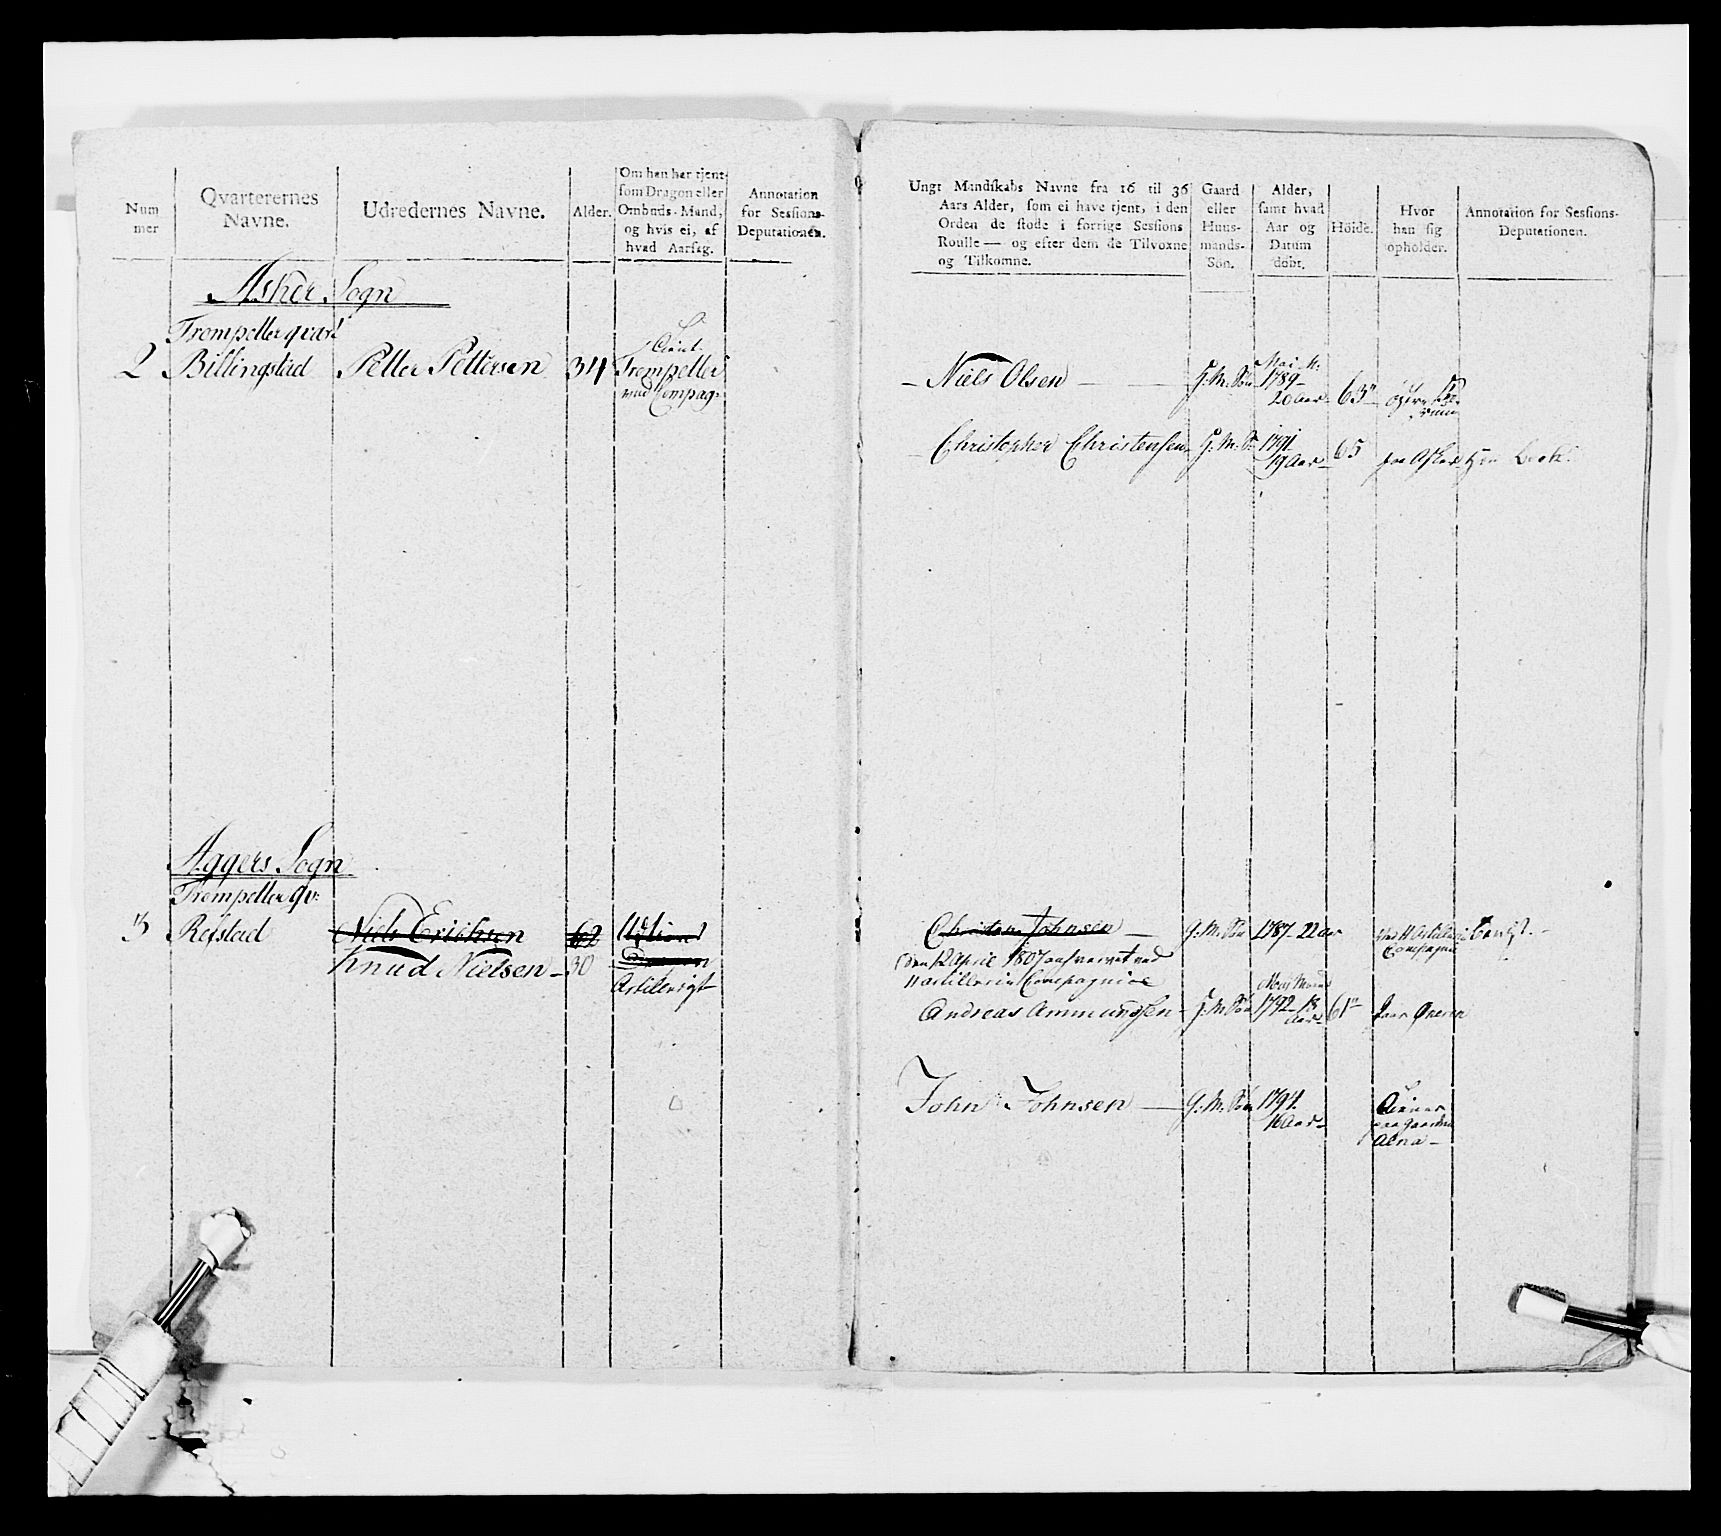 Num
mer
Qvarterernes
Navne.
Udredernes Navne.
Alder.
Om han har tjent
som Dragon eller
Ombuds-Mand,
og hvis ei, af
hvad Aarsag.
Annotation
for Sessions-
Deputationen.
Asker Sogn
Trompetter qvart
2 Billingstad Petter Pettersen 34 Trompetter
ved Compag:
Aggers Sogn
Trompetter Qv:
3 Refstad Niels Erichsen 62 Udtient
Knud Nielsen - 30
Artillerigt
Ungt Mandskabs Navne fra 16 til 36
Aars Alder, som ei have tjent, i den
Orden de stode i forrige Sessions
Roulle — og efter dem de Tilvoxne
og Tilkomne.
Gaard
eller
Huus-
mands-
Søn.
Alder,
samt hvad
Aar og
Datum
døbt.
Høide.
Hvor
han sig
opholder.
Annotation for Sessions-
Deputationen.
Mai M:
- Niels Olsen - G. M. Søn 1789-
20 Aar- 63"
Christopher Christensen G. M. S. 1791
19 Aar- 65 paa Asker
Christen Johnsen - G. M. Søn 1787- 22 aar ved Artilleri
Compagnie
den 12 April 1807 ved
Artilleri Compagnie
Andreas Ammundsen - G. M. Søn 1792- 18
Aar- 61" paa Øveren
John Johnsen - G. M. Søn 1794.
16 Aar- tiener
paa gaarden
Alna -